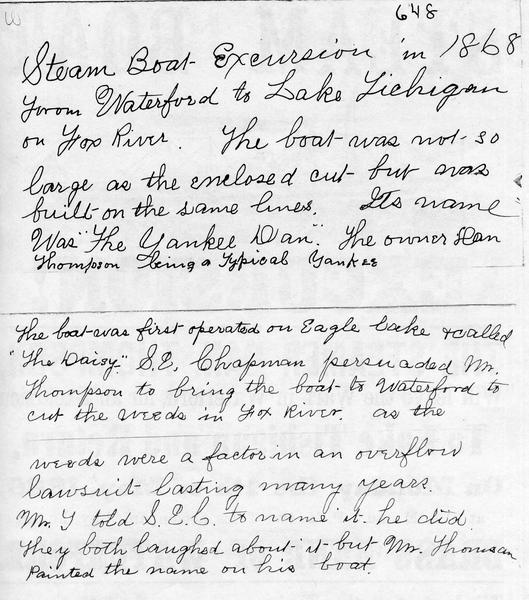 W
648
Steam Boat Excursion in 1868
From Waterford to Lake Tichigan
on Fox River. The boat was not so
large as the enclosed cut but was
built on the same lines. Its name
Was "The Yankee Dan". The owner Dan
Thompson being a Typical Yankee
The boat was first operated on Eagle Lake & called
"The Daisy." S.E. Chapman persuaded Mr.
Thompson to bring the boat to Waterford to
cut the weeds in Fox River. as the
weeds were a factor in an overflow
lawsuit lasting many years.
Mr. T told S.E.C. to name it. he did
They both laughed about it but Mr. Thomsan
Painted the name on his boat.